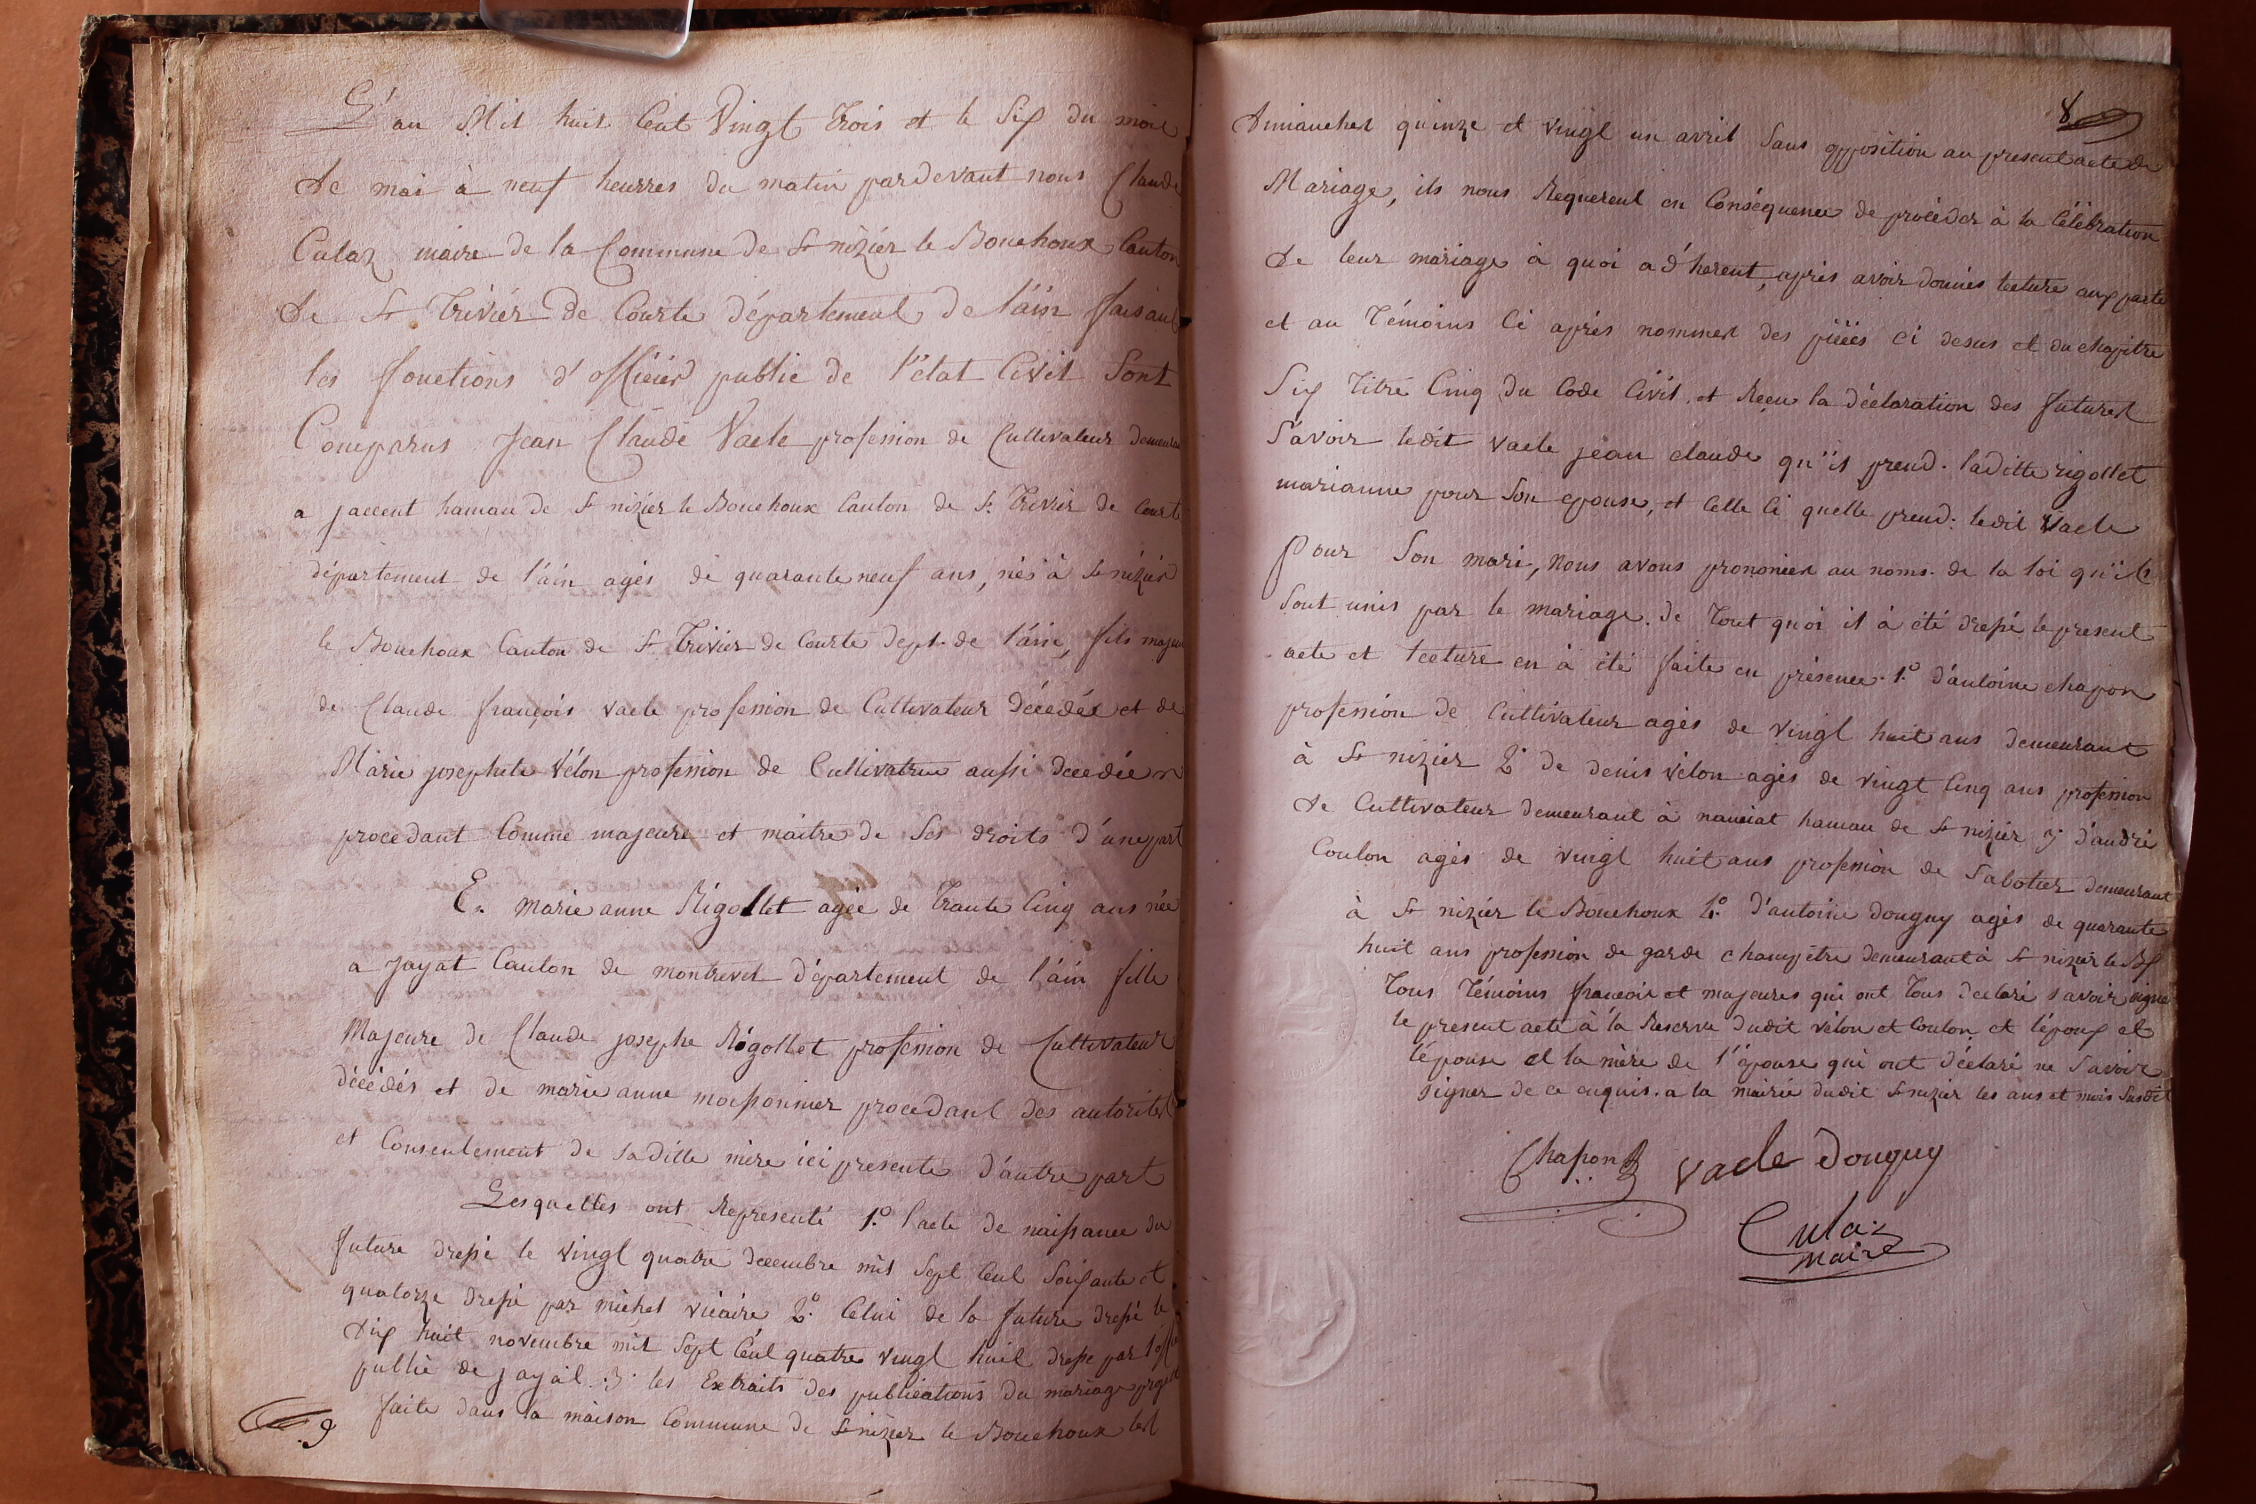 L'an Mil huit Cent Vingt trois et le Six du mois
de mai à neuf heurres du matin pardevant nous Claude
Culaz maire de la Commune de St nizier le Bouchoux Canton
de St Trivier de Courte département de l'ain faisant
les fonctions d'officier public de l'état Civil Sont
Comparus Jean Claude Vacle profession de Cultivateur
a jaccent hamau de St nizier le Bouchoux Canton de St Trivier de Courte
département de l'ain agés de quarante neuf ans, nés à St nizier
le Bouchoux Canton de St Trivier de Courte dept. de l'ain, fils
de Claude françois vacle profession de Cultivateur décédés et de
Marie josephete Vélon profession de Cultivatrice aussi décédée
procedant Comme majeure et maitre de Ses droits d'une part
Et marie anne Rigollet agée de trante Cinq ans née
a Jayat Canton de montrevel département de l'ain fille
Majeure de Claude josephe Rigollet profession de Cultivateur
décédés et de marie anne moissonnier procedant des autorités
et Consentement de sa ditte mère ici presente d'autre part
Lesquelles ont Representé 1.º l'acte de naissance du
future dressé le vingt quatre decembre mil Sept Cent Soixante et
quatorze dressé par michel vicaire 2.º Celui de la future dressé le
dix huit novembre mil Sept Cent quatre vingt huit dressé par
public de jayat. 3.º les Extraits des publications du mariage
faite dans la maison Commune de St nizier le Bouchoux les
9
8
dimanches quinze et vingt un avril Sans opposition au present acte de
Mariage, ils nous Requerent en Conséquence de procéder à la Célébration
de leur mariage à quoi adherent, après avoir donnés lecture aux
et au Témoins Ci après nommes des piéés ci desus et du chapitre
Six Titre Cinq du Code Civil. et Reçu la déclaration des futures
Savoir ledit vacle jean claude qu'il prend. laditte rigollet
marianne pour Son epouse, et Celle Ci quelle prend: ledit Vacle
pour Son mari, nous avous prononcer au noms. de la loi qu'ils
Sont unis par le mariage. de Tout quoi il à été dressé le present
acte et lecture en à été faite en présence. 1.º d'antoine chapon
profession de Cultivateur agés de vingt huit ans demeurant
à St nizier 2º de denis Vélon agés de vingt Cinq ans profession
de Cultivateur demeurant à nanciat hamau de St nizier 3º d'andré
Coulon agés de vingt huit ans profession de Sabotier demeurant
à St nizier le Bouchoux 4.º d'antoine donguy agés de quarante
huit ans profession de garde champètre demeurant à St nizier le Bx
Tous Témoins françois et majeures qui ont Tous declaré savoir signe
le present acte à la Reserve dudit vélon et Coulon et l'époux et
l'épouse et la mère de l'épouse qui ont déclaré ne Savoir
signer de ce enquis. a la mairie dudit St nizier les ans et mois Susdit
Chapon Vacle Donguy
Culaz
maire